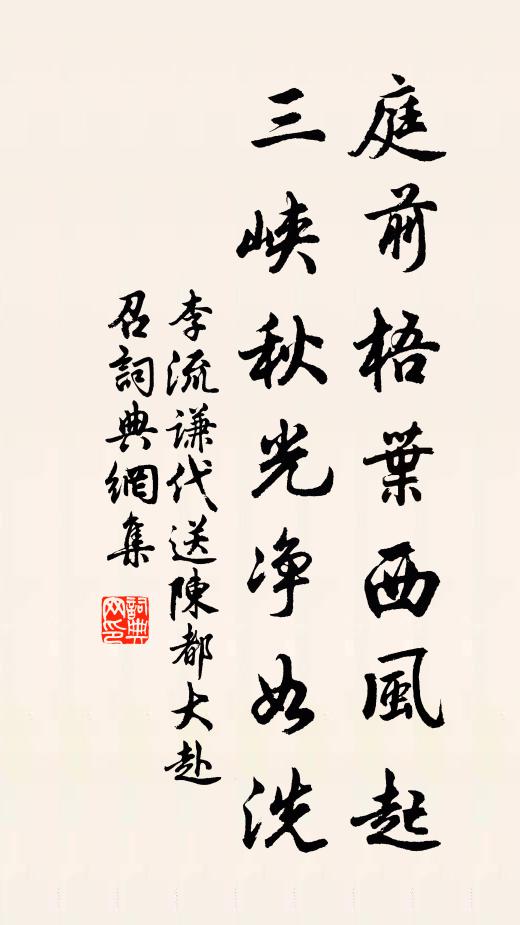 庭前梧葉西風起
三峡秋光净如洗
李流謙代送陳都大赴
召詞典網集
詞典
网印